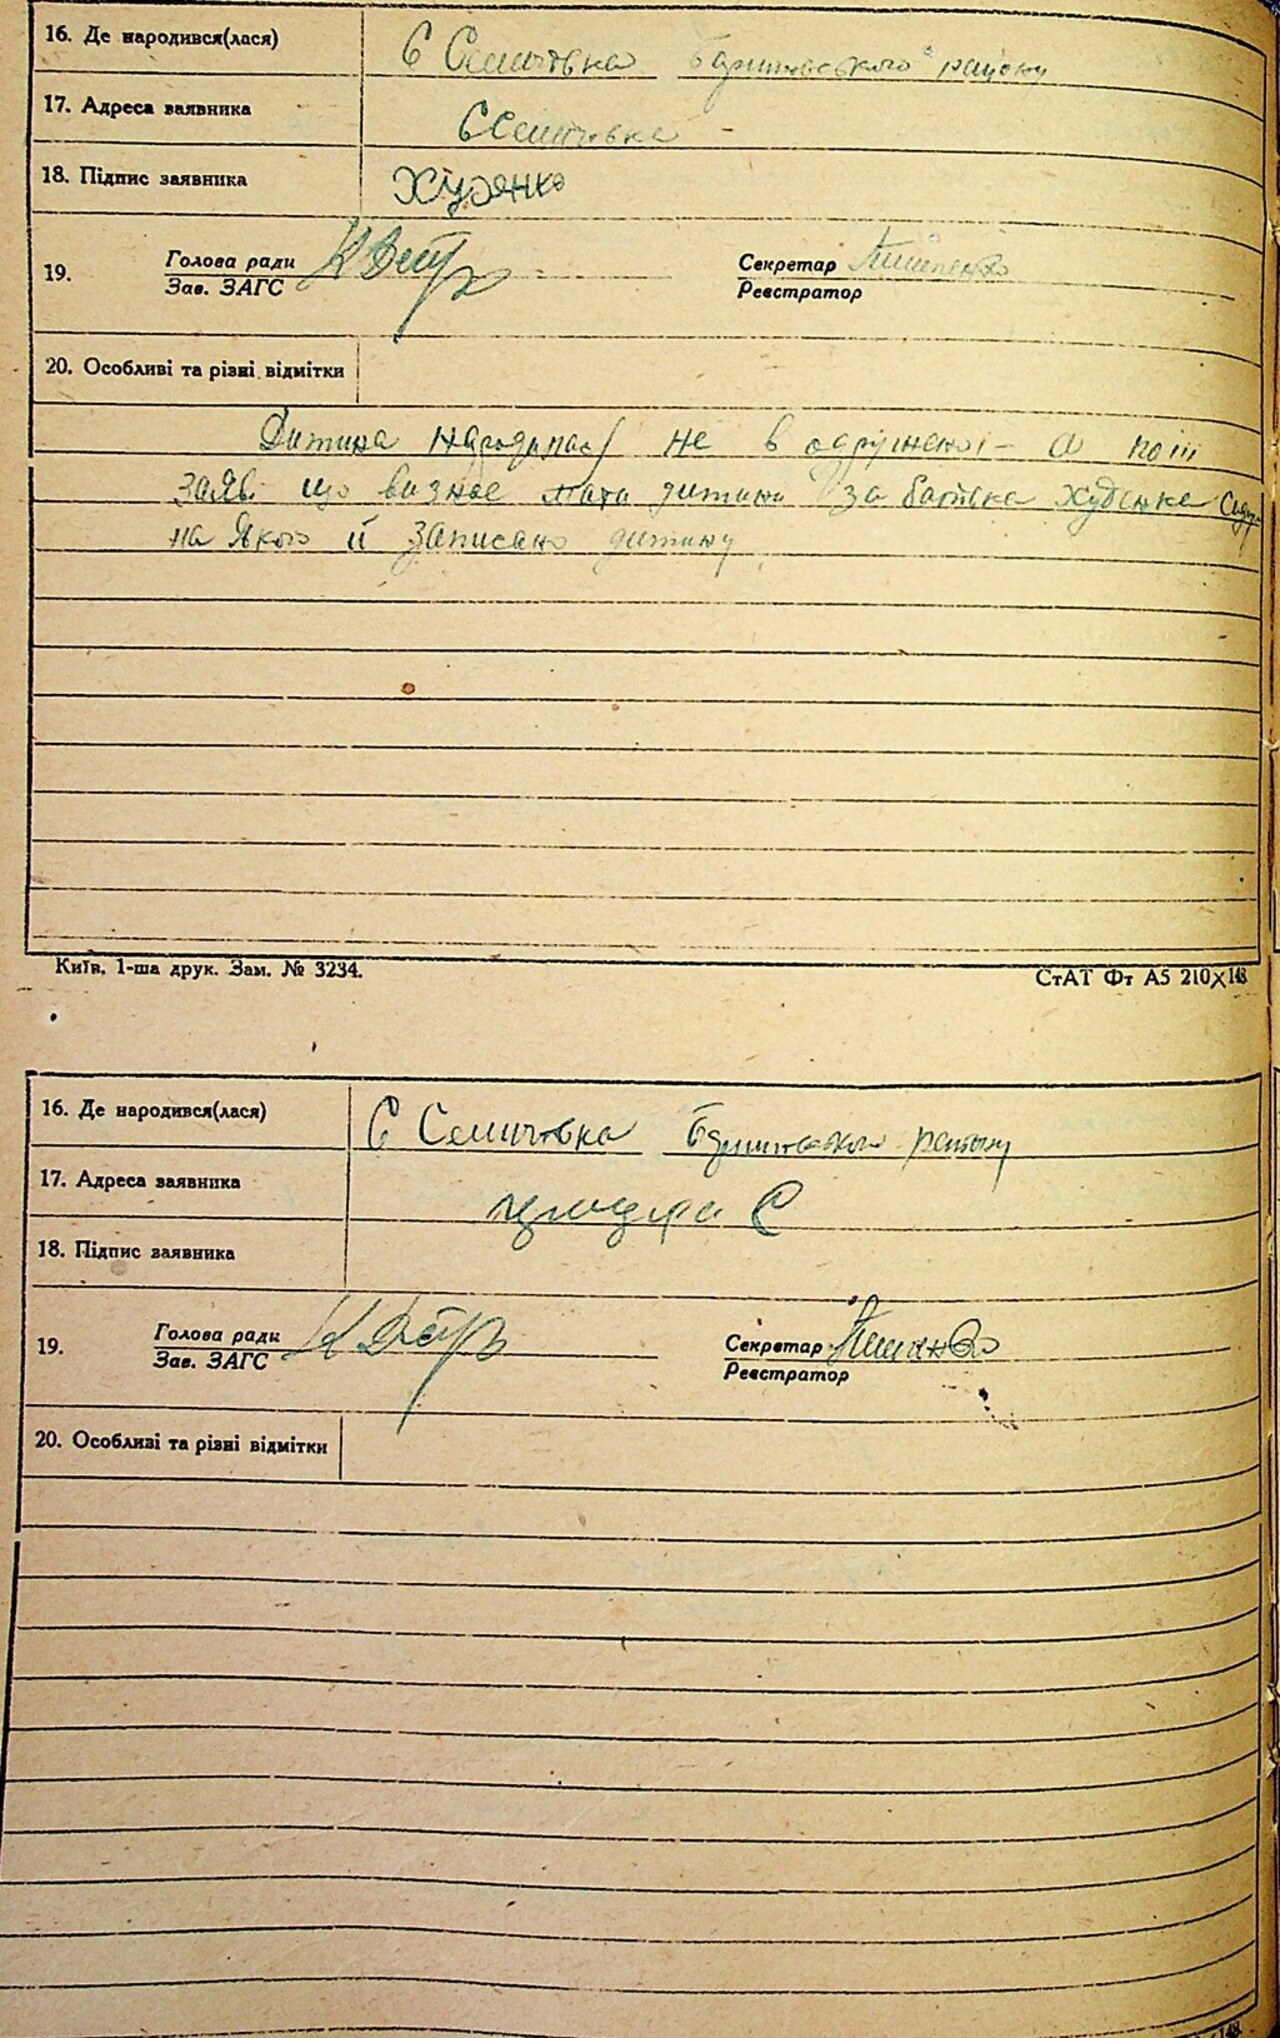 16. Де народився(лася) С Семитовка Баришевського району
17. Адреса заявника С Семитовка
18. Підпис заявника Худенко
19. Голова ради Секретар
Зав. ЗАГС Реєстратор
20. Особливі та різні відмітки
Дитина народилась не в одружені - а по її
заяві що визнає мати дитини за батька Худенка
на якого й записано дитину
Київ. 1-ша друк. Зам. № 3234. СтАТ Фт А5 210X148
16. Де народився(лася) С Семитовка Баришевського району
17. Адреса заявника
18. Підпис заявника
19. Голова ради Секретар
Зав. ЗАГС Реєстратор
20. Особливі та різні відмітки
148